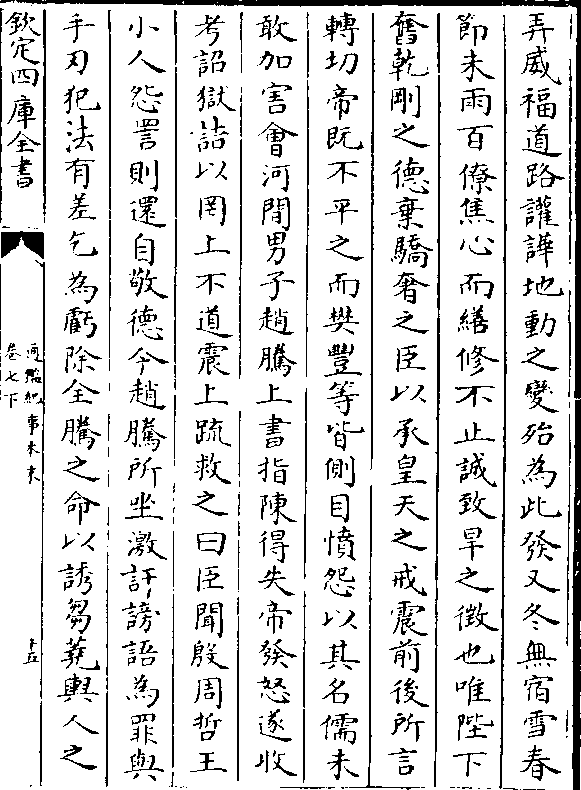 弄威福道路讙譁地動之變殆為此發又冬無宿雪春
節未雨百僚焦心而繕修不止誠致旱之徴也唯陛下
奮乾剛之德棄驕奢之臣以承皇天之戒震前後所言
轉切帝既不平之而樊豐等皆側目憤怨以其名儒未
敢加害會河間男子趙騰上書指陳得失帝發怒遂收
考詔獄詰以罔上不道震上疏救之曰臣聞殷周哲王
小人怨詈則還自敬德今趙騰所坐激訐謗語為罪與
手刃犯法有差乞為虧除全騰之命以誘芻蕘輿人之
欽定四庫全書
通鑑紀事本末
卷七下
十五